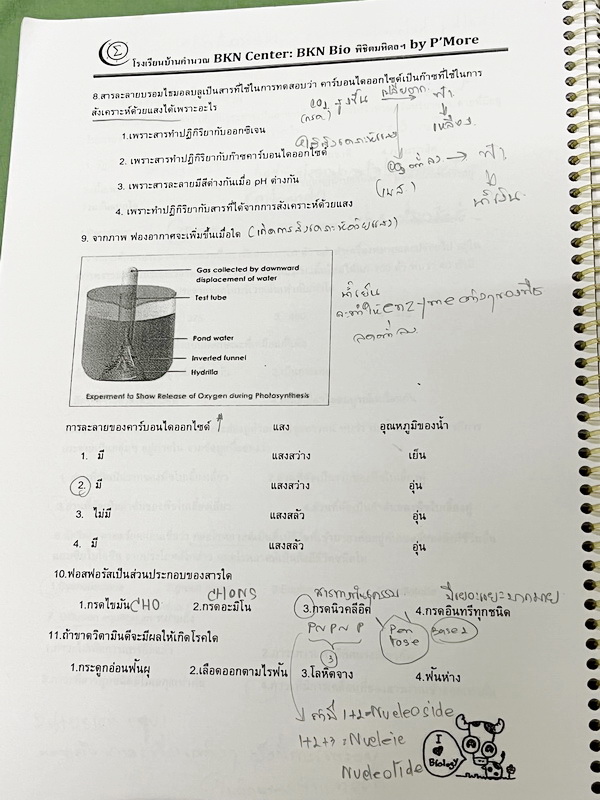 โรงเรียนบ้านคำนวณ BKN Center: BKN Bio พิชิตมหิดลฯ by P'More
8.สารละลายบรอมไธมอลบลูเป็นสารที่ใช้ในการทดสอบว่า คาร์บอนไดออกไซด์เป็นก๊าซที่ใช้ในการ
สังเคราะห์ด้วยแสงได้เพราะอะไร
CO₂ สูงขึ้น
ฟ้า
(กรด)
เหลือง
1.เพราะสารทำปฏิกิริยากับออกซิเจน
2. เพราะสารทำปฏิกิริยากับก๊าซคาร์บอนไดออกไซด์
CO₂ ต่ำลง → ฟ้า
3. เพราะสารละลายมีสีต่างกันเมื่อ pH ต่างกัน
(เบส)
น้ำเงิน
4. เพราะทำปฏิกิริยากับสารที่ได้จากการสังเคราะห์ด้วยแสง
9. จากภาพ ฟองอากาศจะเพิ่มขึ้นเมื่อใด (เกิดการสังเคราะห์ด้วยแสง)
Gas collected by downward
displacement of water
Test tube
Pond water
Inverted funnel
Hydrilla
Experment to Show Release of Oxygen during Photosynthesis
น้ำเย็น
จะทำให้ enzyme
ลดต่ำลง
การละลายของคาร์บอนไดออกไซด์ แสง อุณหภูมิของน้ำ
1. มี แสงสว่าง เย็น
2. มี แสงสว่าง อุ่น
3. ไม่มี แสงสลัว อุ่น
4. มี แสงสลัว อุ่น
10.ฟอสฟอรัสเป็นส่วนประกอบของสารใด
CHONS สารทางพันธุกรรม
1.กรดไขมัน CHO 2.กรดอะมิโน 3.กรดนิวคลีอิค 4.กรดอินทรีทุกชนิด
PNPNP Pentose Bases
11.ถ้าขาดวิตามินดีจะมีผลให้เกิดโรคใด
3
1.กระดูกอ่อนฟันผุ 2.เลือดออกตามไรฟัน 3.โลหิตจาง 4.ฟันห่าง
1+2=Nucleoside
1+2+3 = Nucleic
Nucleotide
I ♥ Biology